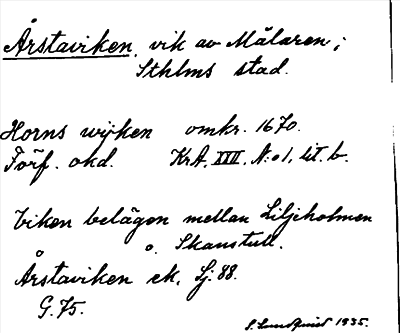 Årstaviken, vik av Mälaren i
Sthlms stad.
Horns wijken omkr. 1670.
Förf. okd. KrA, XXII, N:o 1, lit. b.
Viken belägen mellan Liljeholmen
o. Skanstull.
Årstaviken ek, Sj: 88.
G. 75.
S. Lundquist 1935.